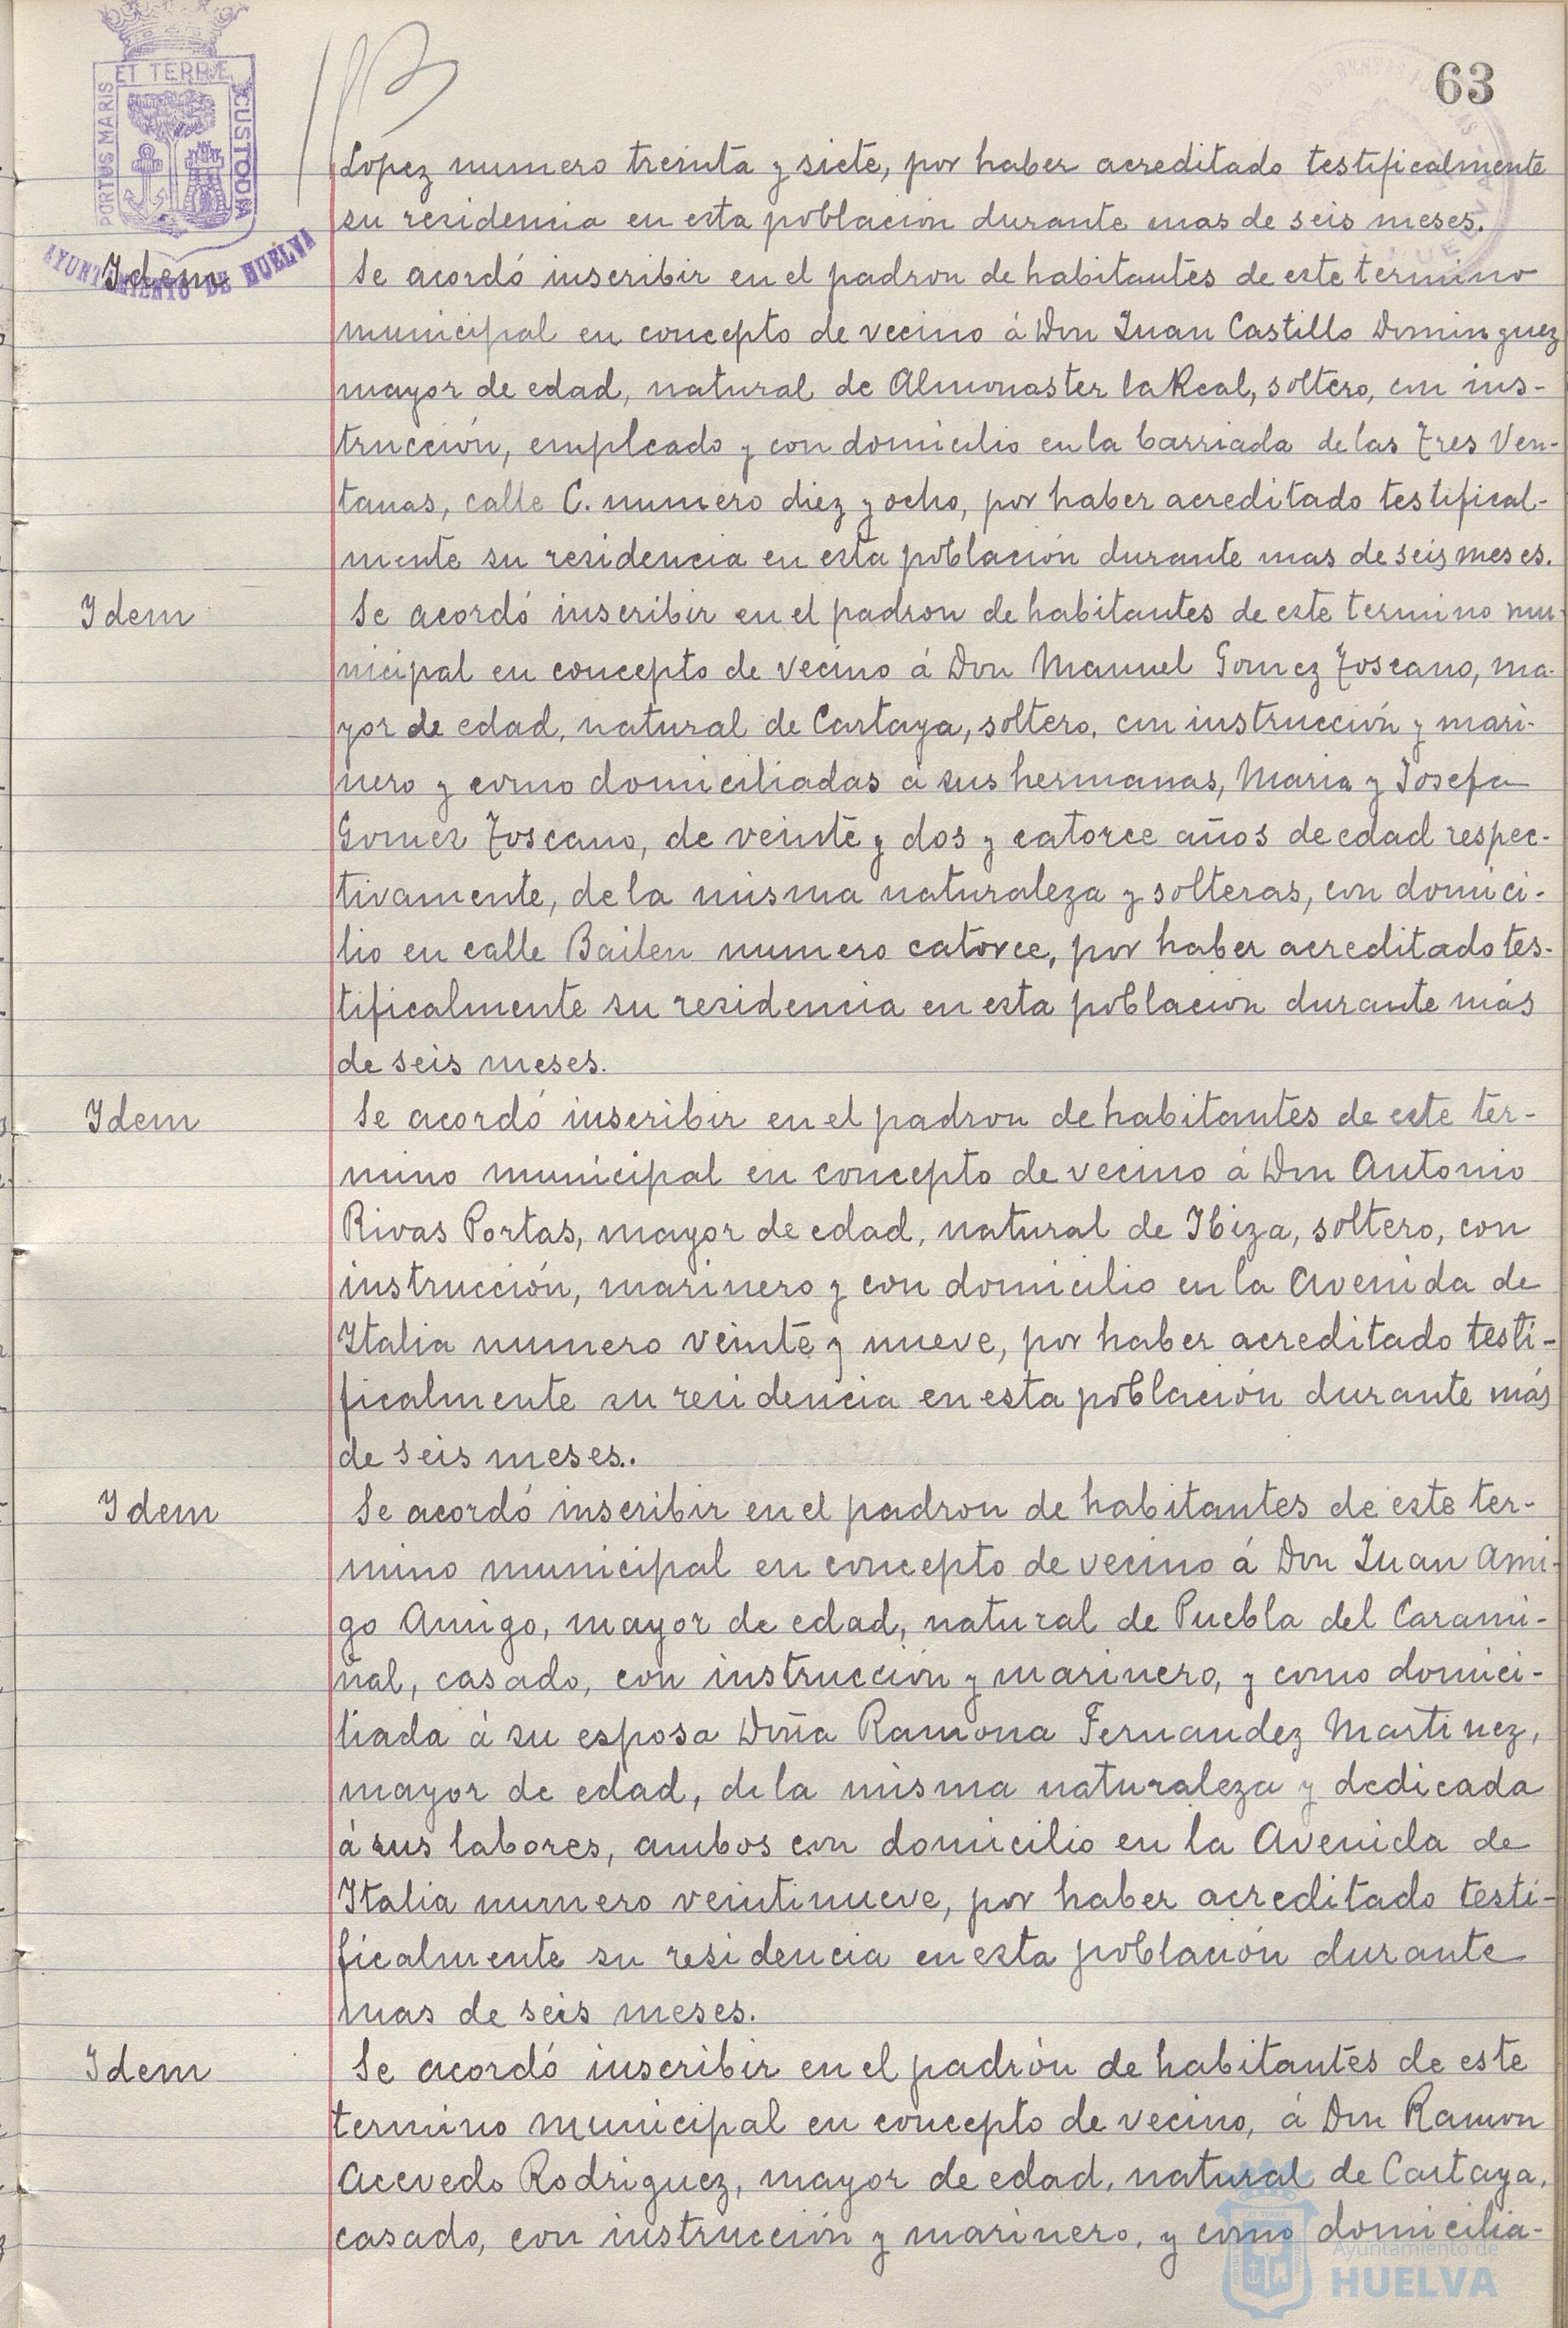 63
PORTUS MARIS ET TERRÆ CUSTODIA
AYUNTAMIENTO DE HUELVA
Lopez numero treinta y siete, por haber acreditado testificalmente
su residencia en esta poblacion durante mas de seis meses.
Idem
Se acordó inscribir en el padron de habitantes de este termino
municipal en concepto de vecino á Don Juan Castillo Dominguez
mayor de edad, natural de Almonaster la Real, soltero, con ins-
trucción, empleado y con domicilio en la barriada de las Tres Ven-
tanas, calle C. numero diez y ocho, por haber acreditado testifical-
mente su residencia en esta poblacion durante mas de seis meses.
Idem
Se acordó inscribir en el padron de habitantes de este termino mu-
nicipal en concepto de vecino á Don Manuel Gomez Toscano, ma-
yor de edad, natural de Cartaya, soltero, con instrucción y mari-
nero y como domiciliadas á sus hermanas, Maria y Josefa
Gomez Toscano, de veinte y dos y catorce años de edad respec-
tivamente, de la misma naturaleza y solteras, con domici-
lio en calle Bailen numero catorce, por haber acreditado tes-
tificalmente su residencia en esta poblacion durante más
de seis meses.
Idem
Se acordó inscribir en el padron de habitantes de este ter-
mino municipal en concepto de vecino á Don Antonio
Rivas Portas, mayor de edad, natural de Ibiza, soltero, con
instrucción, marinero y con domicilio en la Avenida de
Italia numero veinte y nueve, por haber acreditado testi-
ficalmente su residencia en esta población durante más
de seis meses.
Idem
Se acordó inscribir en el padron de habitantes de este ter-
mino municipal en concepto de vecino á Don Juan Ami-
go Amigo, mayor de edad, natural de Puebla del Carami-
ñal, casado, con instrucción y marinero, y como domici-
liada á su esposa Doña Ramona Fernandez Martinez,
mayor de edad, de la misma naturaleza y dedicada
á sus labores, ambos con domicilio en la Avenida de
Italia numero veintinueve, por haber acreditado testi-
ficalmente su residencia en esta población durante
mas de seis meses.
Idem
Se acordó inscribir en el padrón de habitantes de este
termino municipal en concepto de vecino, á Don Ramon
Acevedo Rodriguez, mayor de edad, natural de Cartaya,
casado, con instrucción y marinero, y como domicilia-
Ayuntamiento de
HUELVA